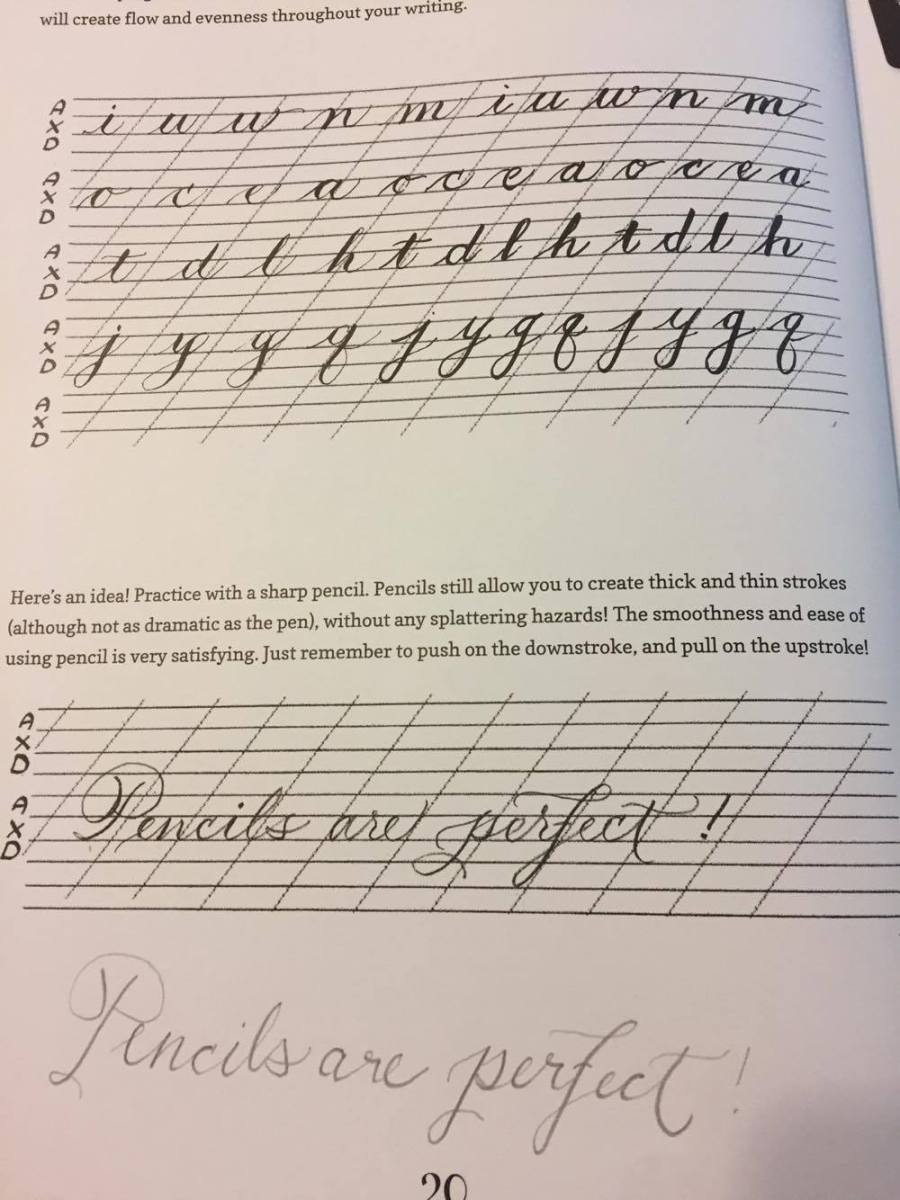 will create flow and evenness throughout your writing.
A
X
D
i u w n m i u w n m
A
X
D
o c e a o c e a o c e a
A
X
D
t d l h t d l h t d l h
A
X
D
j y g q j y g q j y g q
A
X
D
Here's an idea! Practice with a sharp pencil. Pencils still allow you to create thick and thin strokes
(although not as dramatic as the pen), without any splattering hazards! The smoothness and ease of
using pencil is very satisfying. Just remember to push on the downstroke, and pull on the upstroke!
A
X
D
A
X
D
Pencils are perfect!
Pencils are perfect!
20